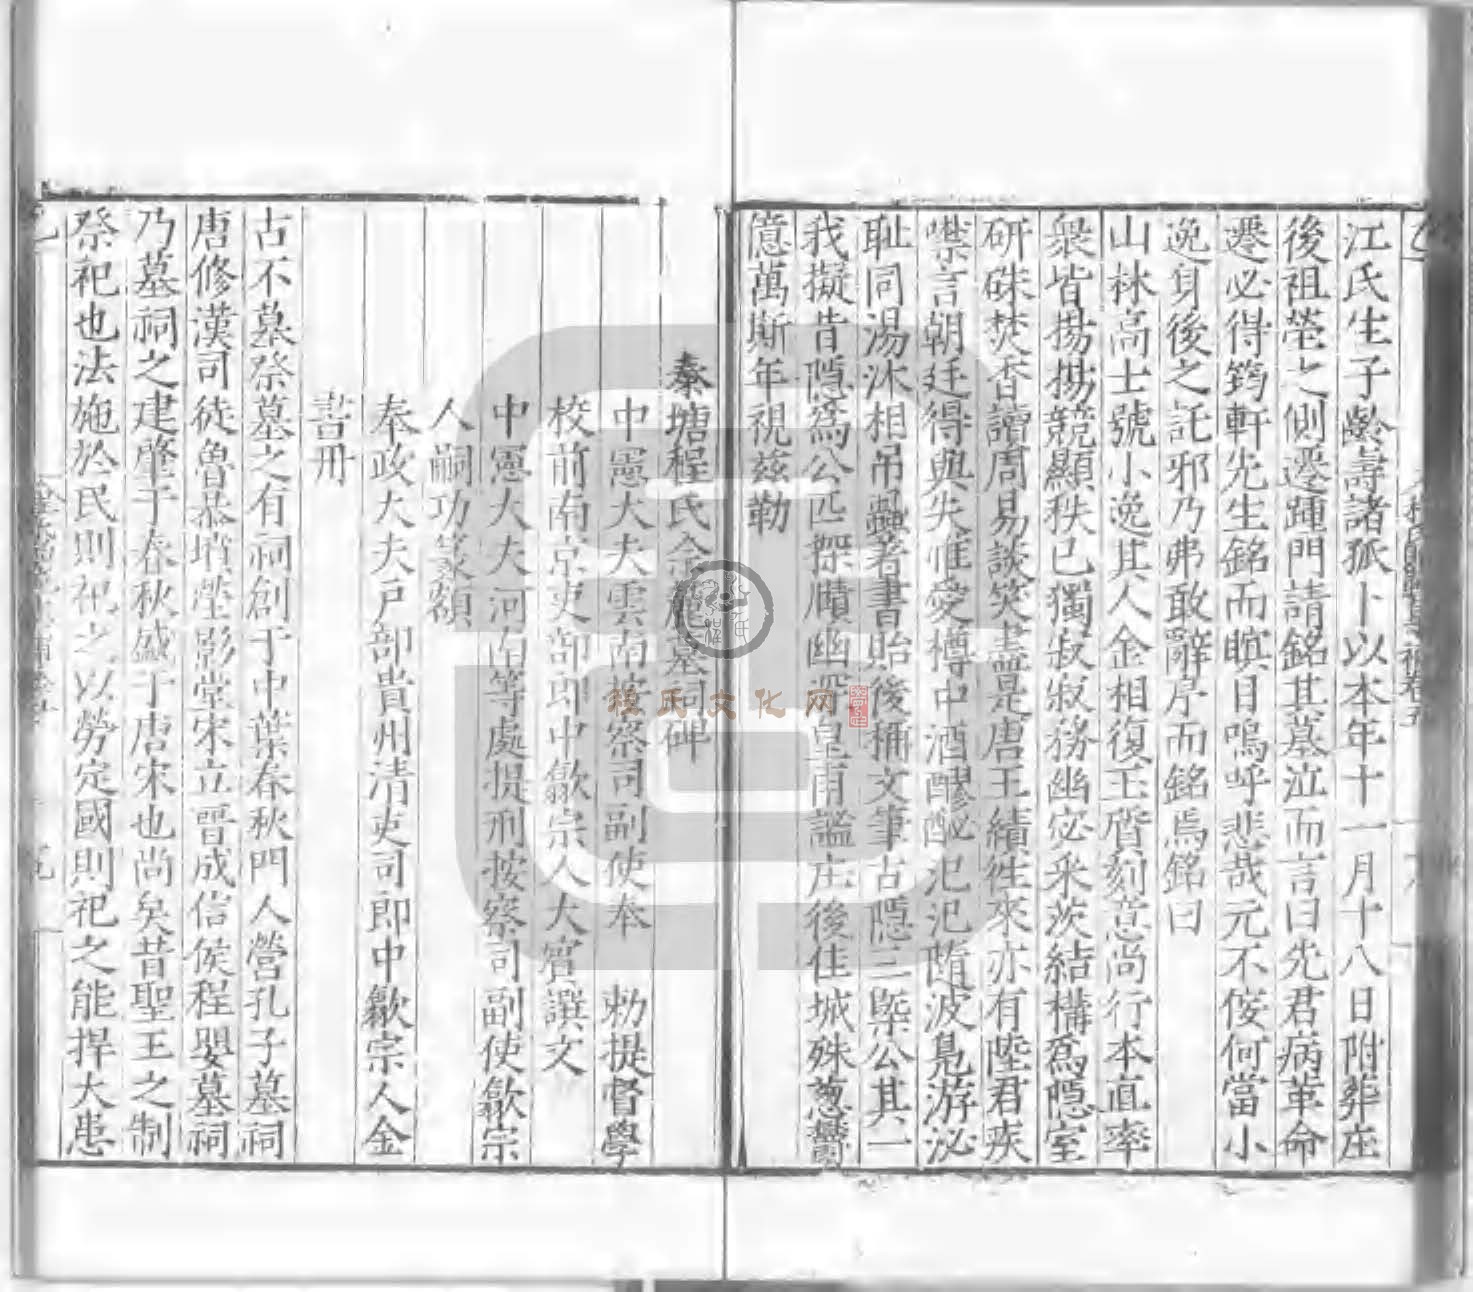 江氏生子齡壽諸孤卜以本年十一月十八日附葬庄
後祖塋之側遷踵門請銘其墓泣而言曰先君病革命
遷必得筠軒先生銘而瞑目嗚呼悲哉元不佞何當小
逸身後之託邪乃弗敢辭序而銘焉銘曰
山林高士號小逸其人金相復玉質刻意尚行本直率
衆皆揚揚競顯秩已獨寂寂務幽宓采茨結構爲隱室
研硃焚香讀周易談笑盡是唐王績徃來亦有陸君疾
噤言朝廷得與失惟愛樽中酒醪 氾氾随波鳧游泌
耻同湯沐相吊 著書貽後稱文筆古隱三 公其一
我擬昔隱爲公匹 牘幽深皇甫謐庄後佳城殊葱鬱
億萬斯年視茲勒
秦塘程氏 墓祠碑
中憲大夫雲南按察司副使奉 勑提督學
校前南京吏部郎中歙宗人大賓譔文
中憲大夫河南等處提刑按察司副使歙宗
人嗣功篆額
奉政大夫戶部貴州清吏司郎中歙宗人金
書冊
古不墓祭墓之有祠創于中葉春秋門人營孔子墓祠
唐修漢司徒魯恭墳塋影堂宋立晉成信侯程嬰墓祠
乃墓祠之建肇于春秋盛于唐宋也尚矣昔聖王之制
祭祀也法施於民則祀之以勞定國則祀之能捍大患
程氏文化网